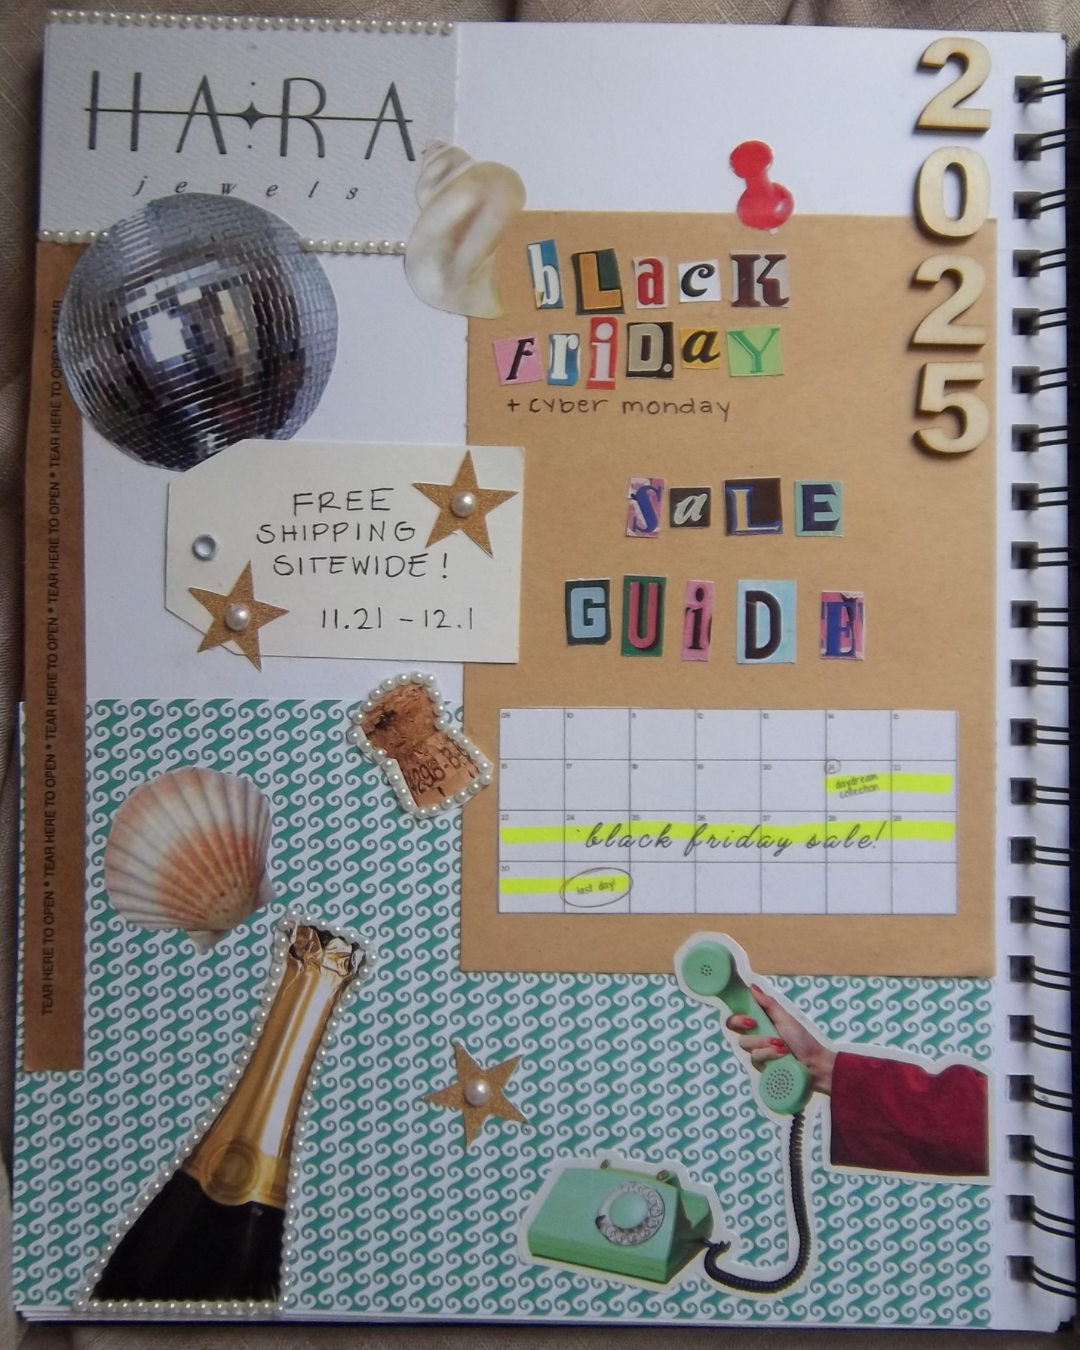 HARA
jewels
2025
bLack
FriD.aY
+ cyber monday
SaLE
GUiDE
FREE
SHIPPING
SITEWIDE!
11.21 - 12.1
TEAR HERE TO OPEN * TEAR HERE TO OPEN * TEAR HERE TO OPEN * TEAR HERE TO OPEN * TEAR HERE TO OPEN * TEAR
09 10 11 12 13 14 15
16 17 18 19 20 21 22
daydream
collection
23 24 25 26 27 28 29
black friday sale!
30
last day!